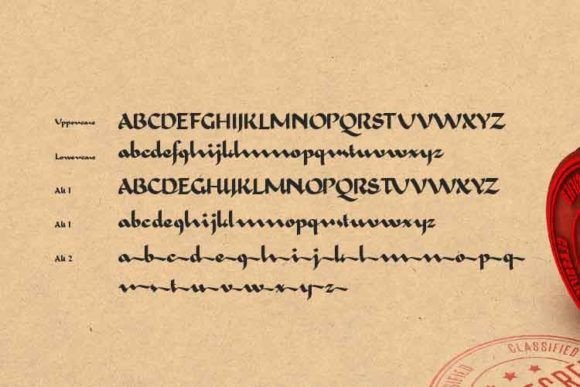 Uppercase ABCDEFGHIJKLMNOPQRSTUVWXYZ
Lowercase abcdefghijklmnopqrstuvwxyz
Alt 1 ABCDEGHIJKLMNOPQRSTUVWXYZ
Alt 1 abcdeghijklmnopqrstuvwxyz
Alt 2 a b c d e g h i j k l m n o p q
r s t u v w x y z
CLASSIFIED